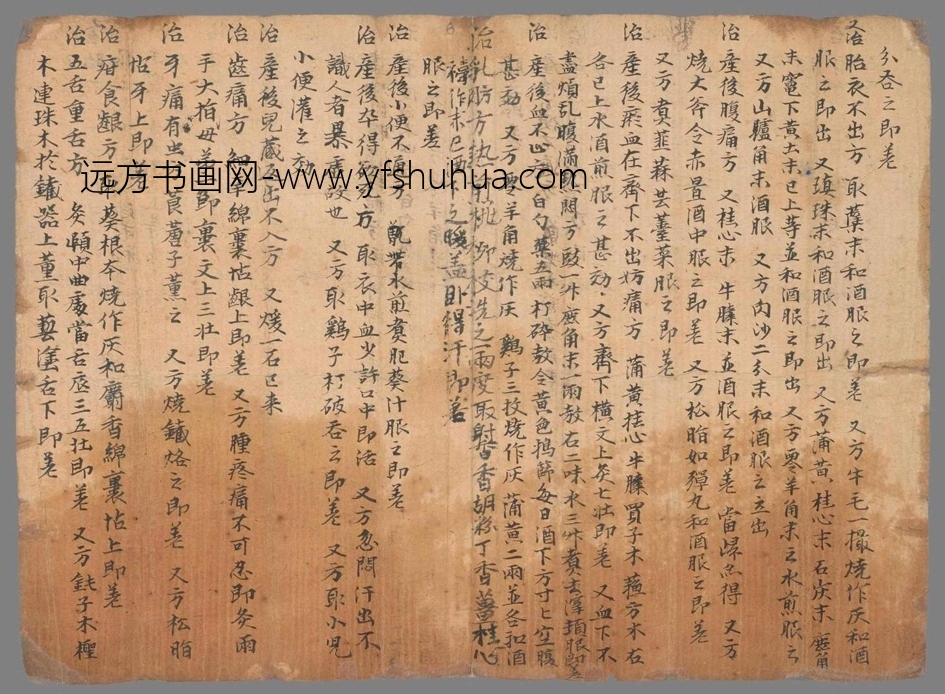 分吞之即差
治胎衣不出方 取藁末和酒服之即差 又方牛毛一撮燒作灰和酒
服之即出 又瑱珠末和酒服之即出 又方蒲黄桂心末石灰末麝角
末竈下黄土末已上等並和酒服之即出 又方零羊角末之水煎服之
又方山驢角末酒服 又方内沙二分末和酒服之立出
治產後腹痛方 又桂心末 牛膝末並酒服之即差 當歸亦得 又方
燒大斧令赤置酒中服之即差 又方松脂如彈丸和酒服之即差
又方煮韮菻芸薹菜服之即差
治產後惡血在齊下不出妨痛方 蒲黄桂心牛膝買子木蘓方木右
各已上水酒煎服之甚効 又方齊下横文上灸七壯即差 又血下不
盡煩乱腹滿悶方 豉一升 麝角末一兩 右二味水三升煮去滓頓服即差
治產後血不止 白勺藥五兩打碎熬令黄色擣篩每日酒下方寸匕空腹
甚効 又方零羊角燒作灰 鷄子三枚燒作灰 蒲黄二兩並各和酒
服之即差
治乳肪方 洗之一兩度取射香胡粉丁香薑桂心
擣作末 暖盖卧得汗即差
治產後小便不 方 甑帶水煎煮肥葵汁服之即差
治產後卒得 方 取衣中血少許口中即活 又方忽悶汗出不
識人者暴 故也 又方取鷄子打破吞之即差 又方取小兒
小便灌之 効
治產後兒藏 出不入方 又煖一石已来
治齒痛方 綿裹怗齦上即差 又方腫疼痛不可忍即灸兩
手大拍母 即裹文上三壯即差
治牙痛有虫 莨蓎子薰之 又方燒鐵烙之即差 又方松脂
怗牙上即差
治疳食齦方 葵根本燒作灰和麝香綿裹怗上即差
治五舌重舌方 灸頥中曲處當舌底三五壯即差 又方 子木樫
木連珠木於鐵器上薰取 塗舌下即差
远方书画网-www.yfshuhua.com